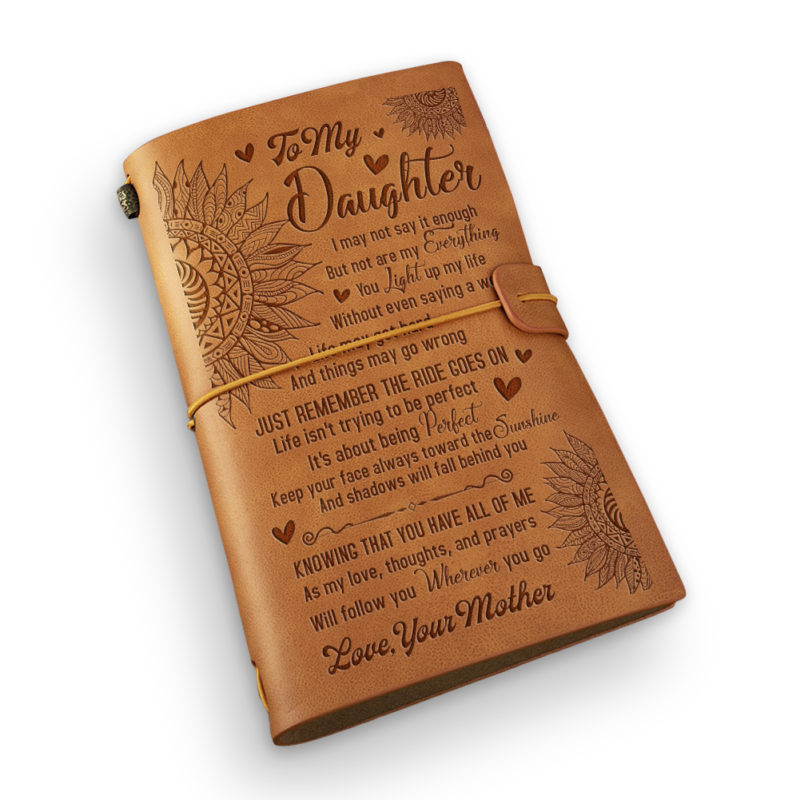 To My
Daughter
I may not say it enough
But not are my Everything
You Light up my life
Without even saying a
Life may get hard
And things may go wrong
JUST REMEMBER THE RIDE GOES ON
Life isn't trying to be perfect
It's about being Perfect
Keep your face always toward the Sunshine
And shadows will fall behind you
KNOWING THAT YOU HAVE ALL OF ME
As my love, thoughts, and prayers
Will follow you Wherever you go
Love, Your Mother